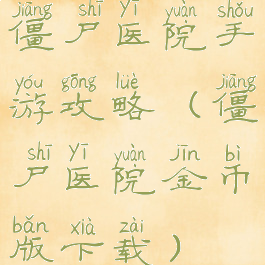 jiāng shī yī yuàn shǒu
僵尸医院手
yóu gōng lüè jiāng
游攻略(僵
shī yī yuàn jīn bì
尸医院金币
bǎn xià zài
版下载)